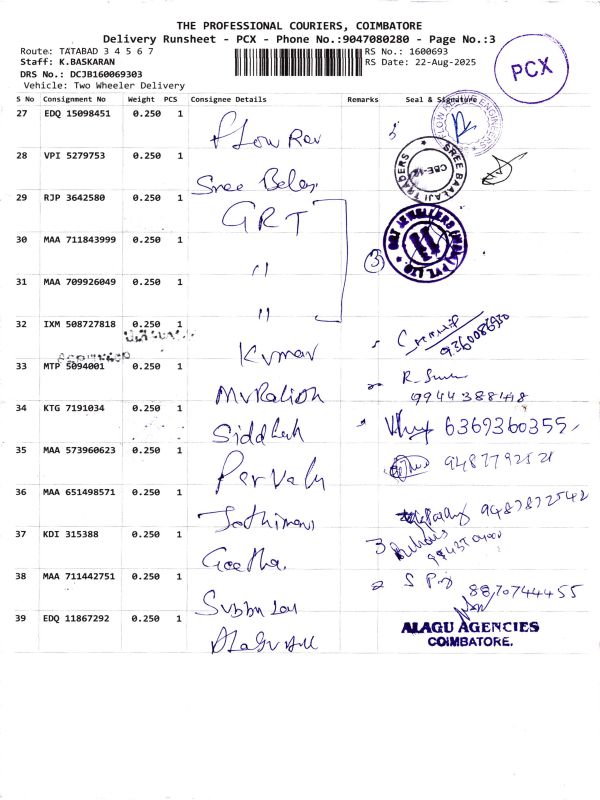 THE PROFESSIONAL COURIERS, COIMBATORE
Delivery Runsheet - PCX - Phone No.:9047080280 - Page No.:3
Route: TATABAD 3 4 5 6 7
RS No.: 1600693
Staff: K.BASKARAN
RS Date: 22-Aug-2025
DRS No.: DCJB160069303
Vehicle: Two Wheeler Delivery
PCX
S No Consignment No Weight PCS Consignee Details Remarks Seal & Signature
27 EDQ 15098451 0.250 1
Flow Rev
28 VPI 5279753 0.250 1
Sree
SREE BALAJI TRADERS
CBE-12
29 RJP 3642580 0.250 1
GRT
GRT JEWELLERS
PVT LTD
3
30 MAA 711843999 0.250 1
"
31 MAA 709926049 0.250 1
"
32 IXM 508727818 0.250 1
Kumar
9360086930
33 MTP 5094001 0.250 1
R.
9944388148
34 KTG 7191034 0.250 1
6369360355
35 MAA 573960623 0.250 1
9487792521
36 MAA 651498571 0.250 1
9487872542
37 KDI 315388 0.250 1
Geetha.
3
38 MAA 711442751 0.250 1
Subbu
2 S
8870744455
39 EDQ 11867292 0.250 1
ALAGU AGENCIES
COIMBATORE.